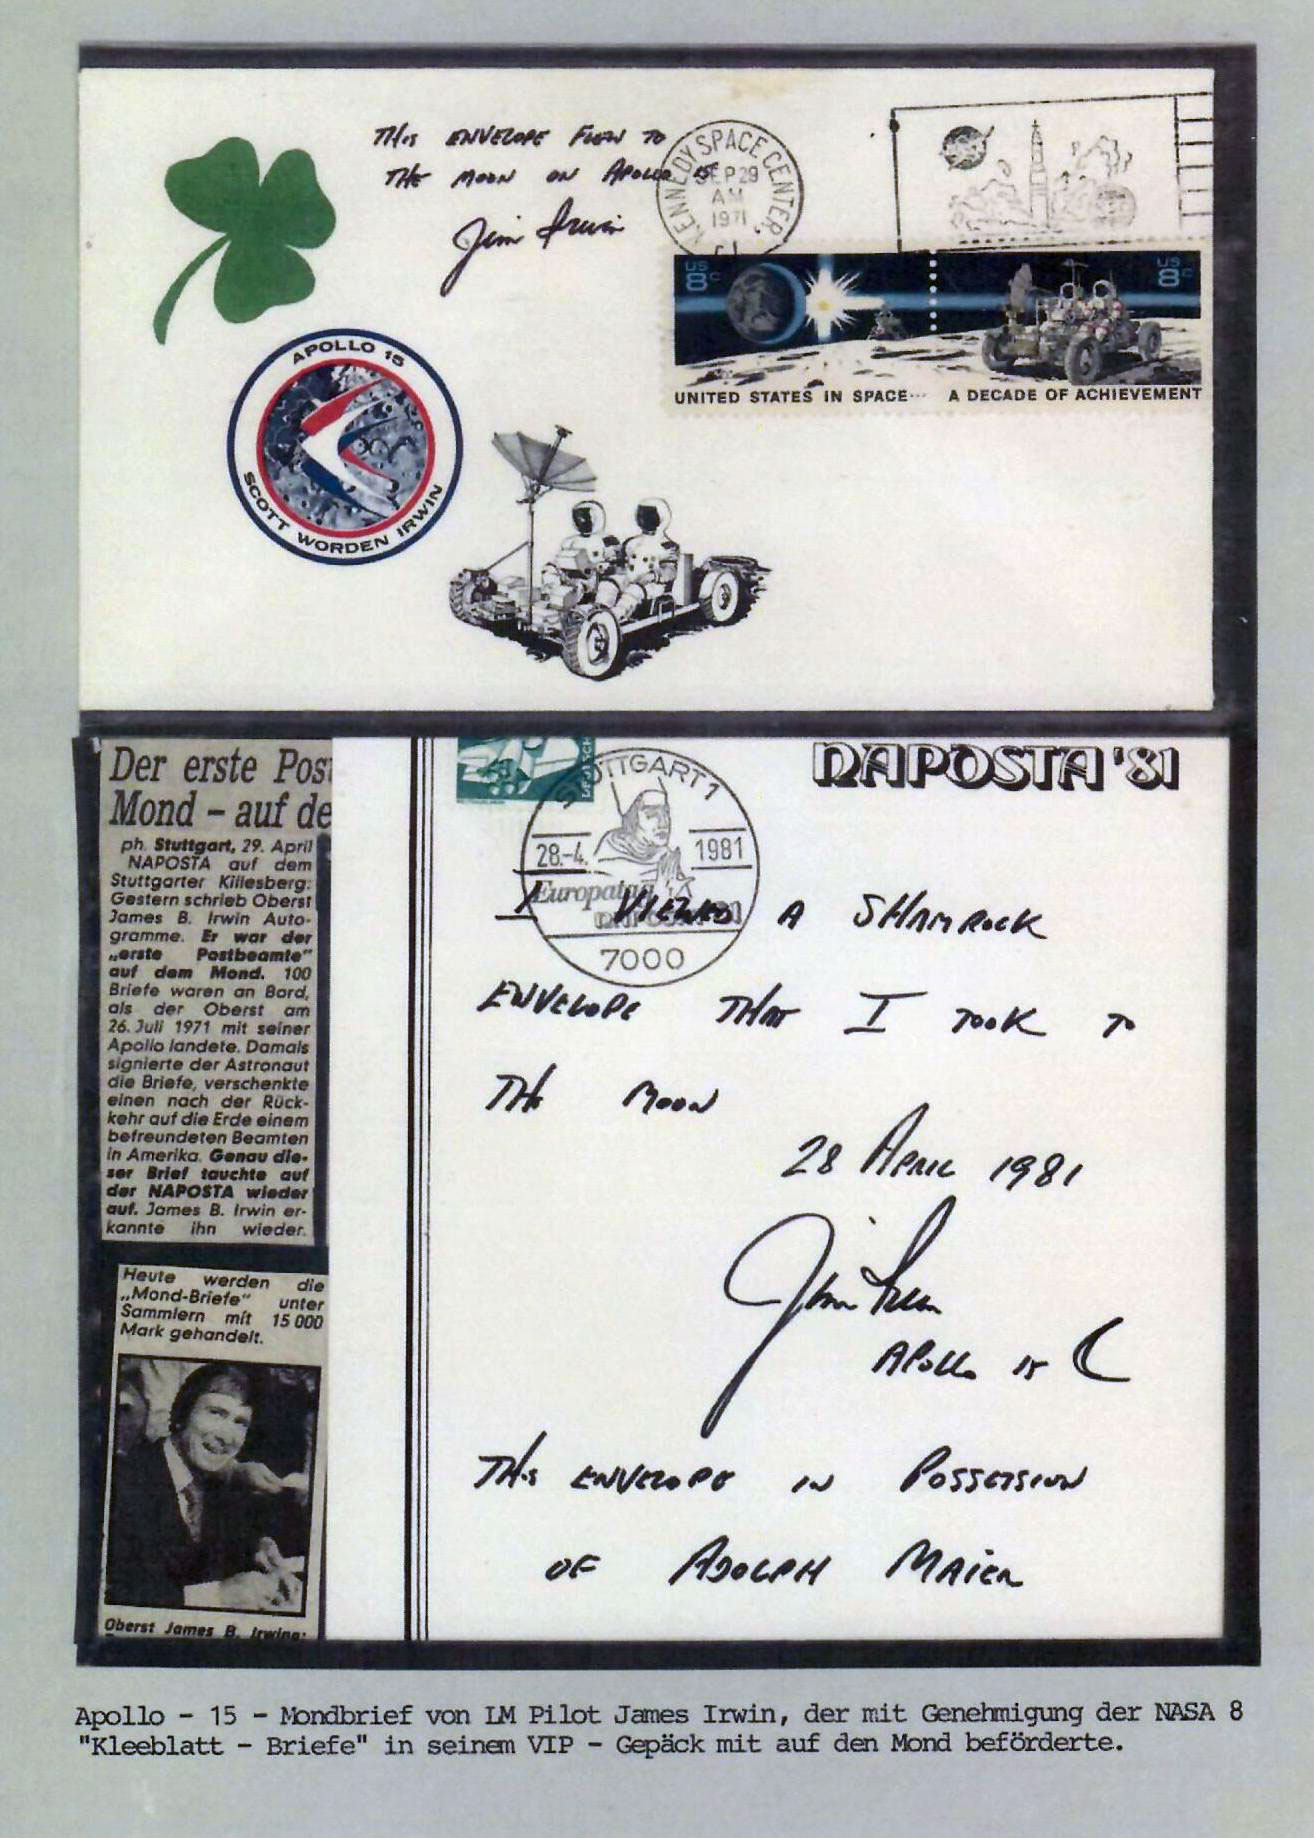 THIS ENVELOPE FLEW TO
THE MOON ON APOLLO 15
Jim Irwin
KENNEDY SPACE CENTER,
SEP 29
AM
1971
US
8c
US
8c
UNITED STATES IN SPACE... A DECADE OF ACHIEVEMENT
APOLLO 15
SCOTT WORDEN IRWIN
Der erste Pos
Mond – auf de
ph. Stuttgart, 29. April
NAPOSTA auf dem
Stuttgarter Killesberg:
Gestern schrieb Oberst
James B. Irwin Auto-
gramme. Er war der
„erste Postbeamte"
auf dem Mond. 100
Briefe waren an Bord,
als der Oberst am
26. Juli 1971 mit seiner
Apollo landete. Damals
signierte der Astronaut
die Briefe, verschenkte
einen nach der Rück-
kehr auf die Erde einem
befreundeten Beamten
in Amerika. Genau die-
ser Brief tauchte auf
der NAPOSTA wieder
auf. James B. Irwin er-
kannte ihn wieder.
Heute werden die
„Mond-Briefe" unter
Sammlern mit 15 000
Mark gehandelt.
Oberst James B. Irwing:
NAPOSTA '81
STUTTGART 1
28.-4. 1981
Europatag
NAPOSTA 81
7000
I VIEWED A SHAMROCK
ENVELOPE THAT I TOOK TO
THE MOON
28 APRIL 1981
Jim Irwin
APOLLO 15
THIS ENVELOPE IN POSSESSION
OF ADOLPH MAIER
Apollo - 15 - Mondbrief von LM Pilot James Irwin, der mit Genehmigung der NASA 8
"Kleeblatt - Briefe" in seinem VIP - Gepäck mit auf den Mond beförderte.